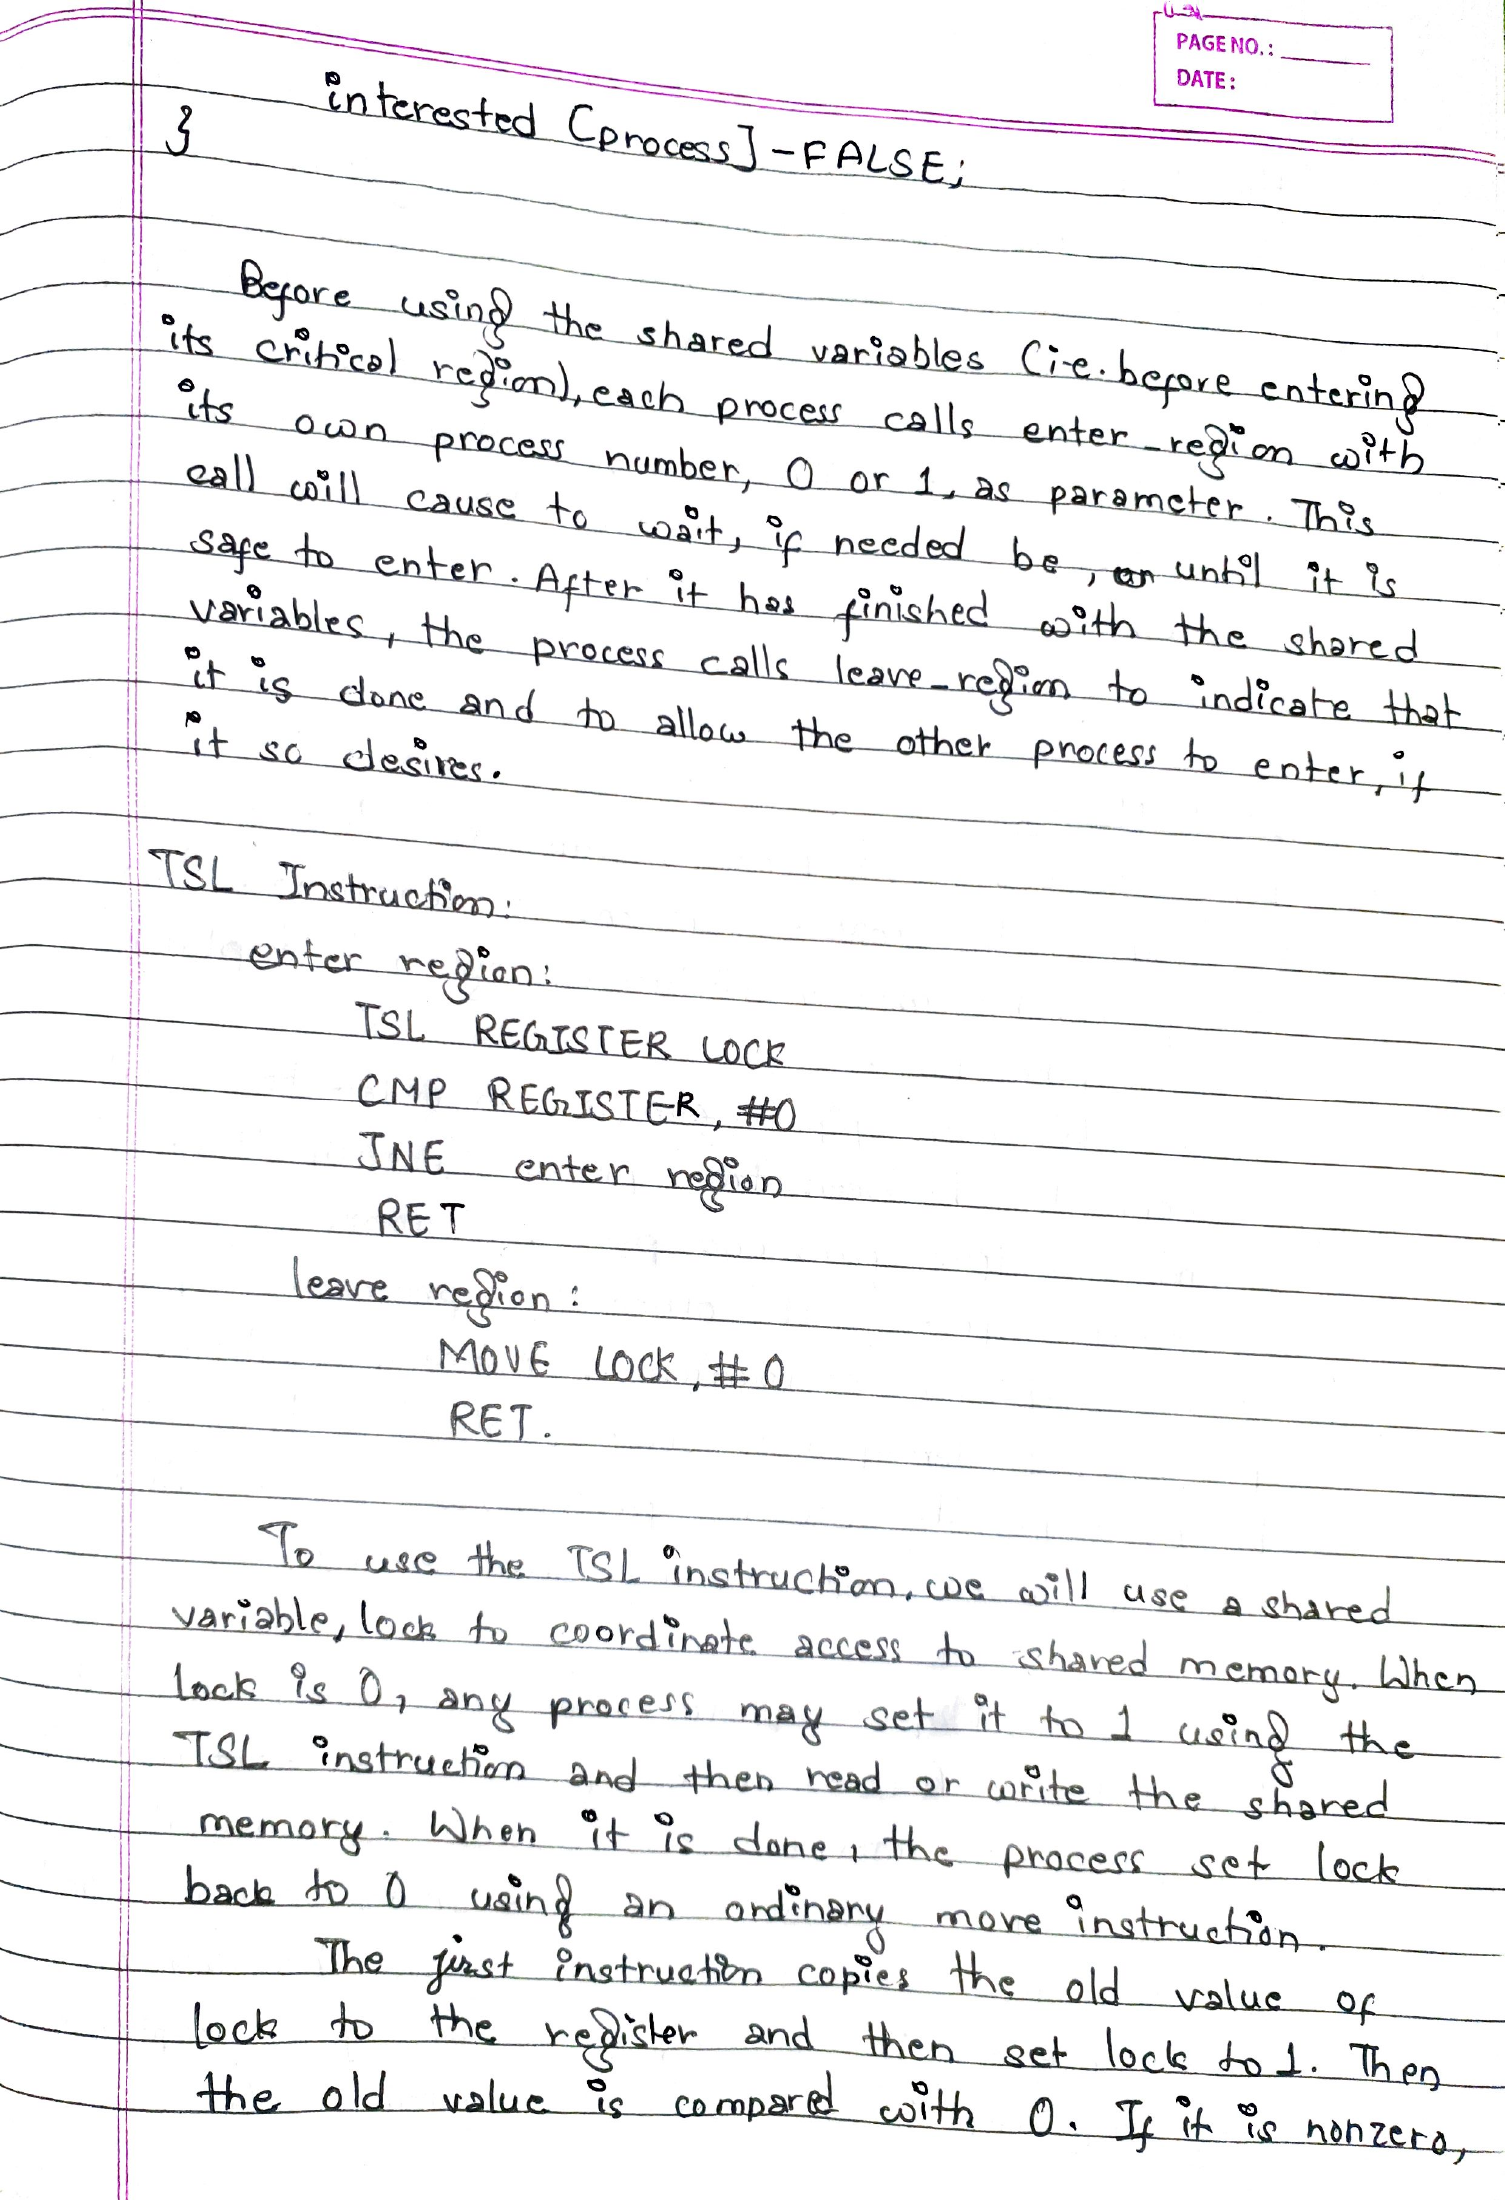 PAGE NO.:
DATE:
interested [process] - FALSE;
}
Before using the shared variables (i.e. before entering
its critical region), each process calls enter_region with
its own process number, 0 or 1, as parameter. This
call will cause to wait, if needed be, until it is
safe to enter. After it has finished with the shared
variables, the process calls leave_region to indicate that
it is done and to allow the other process to enter, if
it so desires.
TSL Instruction:
enter region:
TSL REGISTER LOCK
CMP REGISTER, #0
JNE enter region
RET
leave region:
MOVE LOCK, #0
RET.
To use the TSL instruction, we will use a shared
variable, lock to coordinate access to shared memory. When
lock is 0, any process may set it to 1 using the
TSL instruction and then read or write the shared
memory. When it is done, the process set lock
back to 0 using an ordinary move instruction.
The first instruction copies the old value of
lock to the register and then set lock to 1. Then
the old value is compared with 0. If it is nonzero,